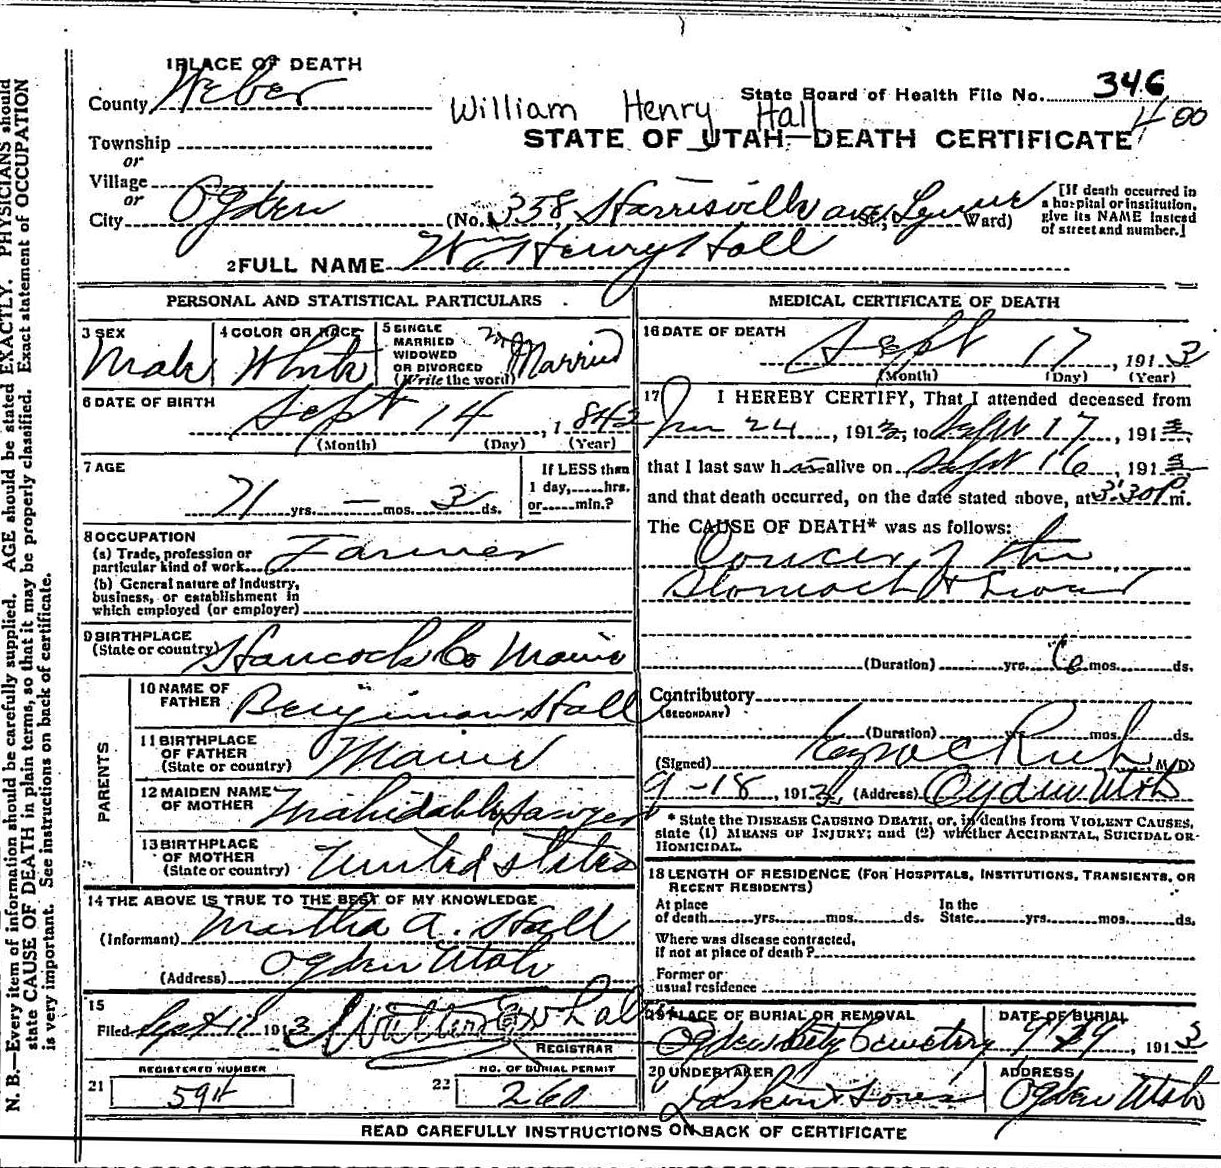 1 PLACE OF DEATH
County Weber
State Board of Health File No. 346
William Henry Hall
400
Township
STATE OF UTAH—DEATH CERTIFICATE
or
Village
or
City Ogden (No. 358 Harrisville ave St.; Lynne Ward)
[If death occurred in
a hospital or institution,
give its NAME instead
of street and number.]
2 FULL NAME Wm Henry Hall
PERSONAL AND STATISTICAL PARTICULARS
3 SEX
Male
4 COLOR OR RACE
White
5 SINGLE
MARRIED
WIDOWED
OR DIVORCED
(Write the word)
Married
6 DATE OF BIRTH
Sept 14, 1842
(Month) (Day) (Year)
7 AGE
71 yrs. — mos. 3 ds.
If LESS than
1 day,......hrs.
or......min.?
8 OCCUPATION
(a) Trade, profession or
particular kind of work Farmer
(b) General nature of Industry,
business, or establishment in
which employed (or employer)
9 BIRTHPLACE
(State or country) Hancock Co Maine
PARENTS
10 NAME OF
FATHER Benjiman Hall
11 BIRTHPLACE
OF FATHER
(State or country) Maine
12 MAIDEN NAME
OF MOTHER Sawyer
13 BIRTHPLACE
OF MOTHER
(State or country) United States
14 THE ABOVE IS TRUE TO THE BEST OF MY KNOWLEDGE
(Informant) Martha A. Hall
(Address) Ogden Utah
15
Filed Sept 1913
REGISTRAR
REGISTERED NUMBER
21 594
NO. OF BURIAL PERMIT
22 260
MEDICAL CERTIFICATE OF DEATH
16 DATE OF DEATH
Sept 17, 1913
(Month) (Day) (Year)
17 I HEREBY CERTIFY, That I attended deceased from
24, 1913, to Sept 17, 1913,
that I last saw h alive on Sept 16, 1913,
and that death occurred, on the date stated above, at 3:30 P m.
The CAUSE OF DEATH* was as follows:
Cancer of the
Stomach & Liver
(Duration) yrs. 6 mos. ds.
Contributory
(SECONDARY)
(Duration) yrs. mos. ds.
(Signed) Rich M. D.
9-18, 1913 (Address) Ogden Utah
* State the DISEASE CAUSING DEATH, or, in deaths from VIOLENT CAUSES,
state (1) MEANS OF INJURY; and (2) whether ACCIDENTAL, SUICIDAL OR
HOMICIDAL.
18 LENGTH OF RESIDENCE (FOR HOSPITALS, INSTITUTIONS, TRANSIENTS, OR
RECENT RESIDENTS)
At place of death yrs. mos. ds. In the State yrs. mos. ds.
Where was disease contracted,
if not at place of death?
Former or
usual residence
19 PLACE OF BURIAL OR REMOVAL
Ogden City Cemetery
DATE OF BURIAL
9/29, 1913
20 UNDERTAKER
Larkin & Sons
ADDRESS
Ogden Utah
READ CAREFULLY INSTRUCTIONS ON BACK OF CERTIFICATE
N. B.—Every item of information should be carefully supplied. AGE should be stated EXACTLY. PHYSICIANS should
state CAUSE OF DEATH in plain terms, so that it may be properly classified. Exact statement of OCCUPATION
is very important. See instructions on back of certificate.